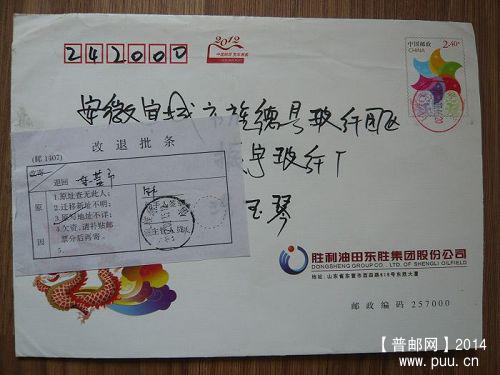 242000
2012
中国邮政
CHINA
2.40元
安徽宣城市旌德县玻纤园区
玻纤厂
玉琴
改退批条
(邮1407)
退回 东营市
原
因
1.原址查无此人;
2.迁移新址不明;
3.原写地址不详;
4.欠资,请补贴邮
票分后再寄。
5.
胜利油田东胜集团股份公司
DONGSHENG GROUP CO., LTD. OF SHENGLI OILFIELD
地址:山东省东营市西四路618号东胜大厦
邮政编码 257000
【普邮网】2014
www.puu.cn